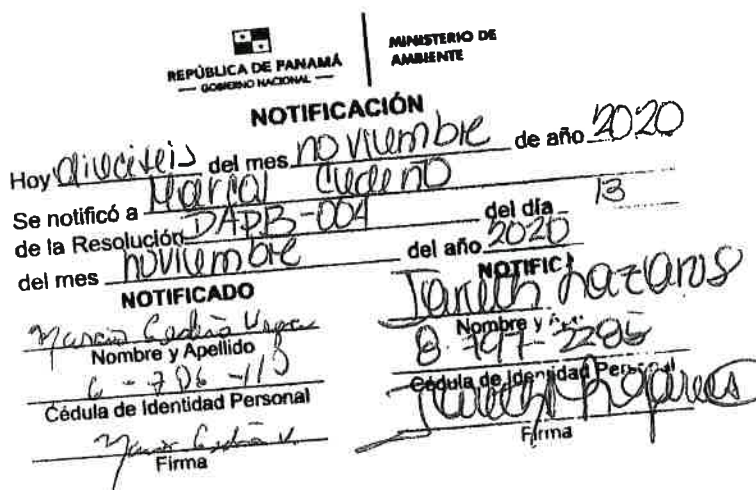 REPÚBLICA DE PANAMÁ
— GOBIERNO NACIONAL —
MINISTERIO DE
AMBIENTE
NOTIFICACIÓN
Hoy dieciseis del mes noviembre de año 2020
Se notificó a Marcial Cedeño
de la Resolución DAPB-004 del día 13
del mes noviembre del año 2020
NOTIFICADO
Cedeño
Nombre y Apellido
6-706-110
Cédula de Identidad Personal
Firma
NOTIFIC
Jarieth Lazarus
Nombre y
8-797-2285
Cédula de Identidad Personal
Firma